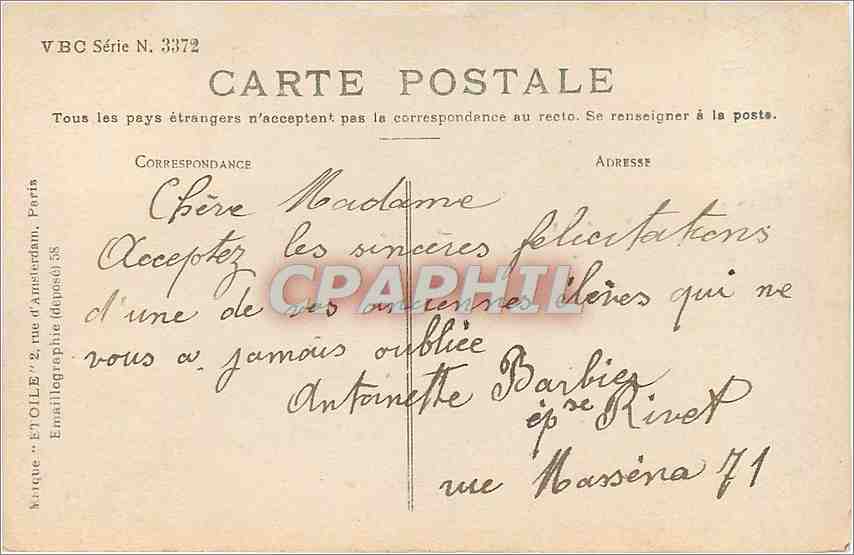 VBC Série N. 3372
CARTE POSTALE
Tous les pays étrangers n'acceptent pas la correspondance au recto. Se renseigner à la poste.
CORRESPONDANCE
ADRESSE
Chère Madame
Acceptez les sincères félicitations
d'une de vos anciennes élèves qui ne
vous a jamais oubliée
Antoinette Barbier
épse Rivet
rue Masséna 71
CPAPHIL
Marque "ETOILE" 2, rue d'Amsterdam, Paris
Emaillographie (déposé) 58